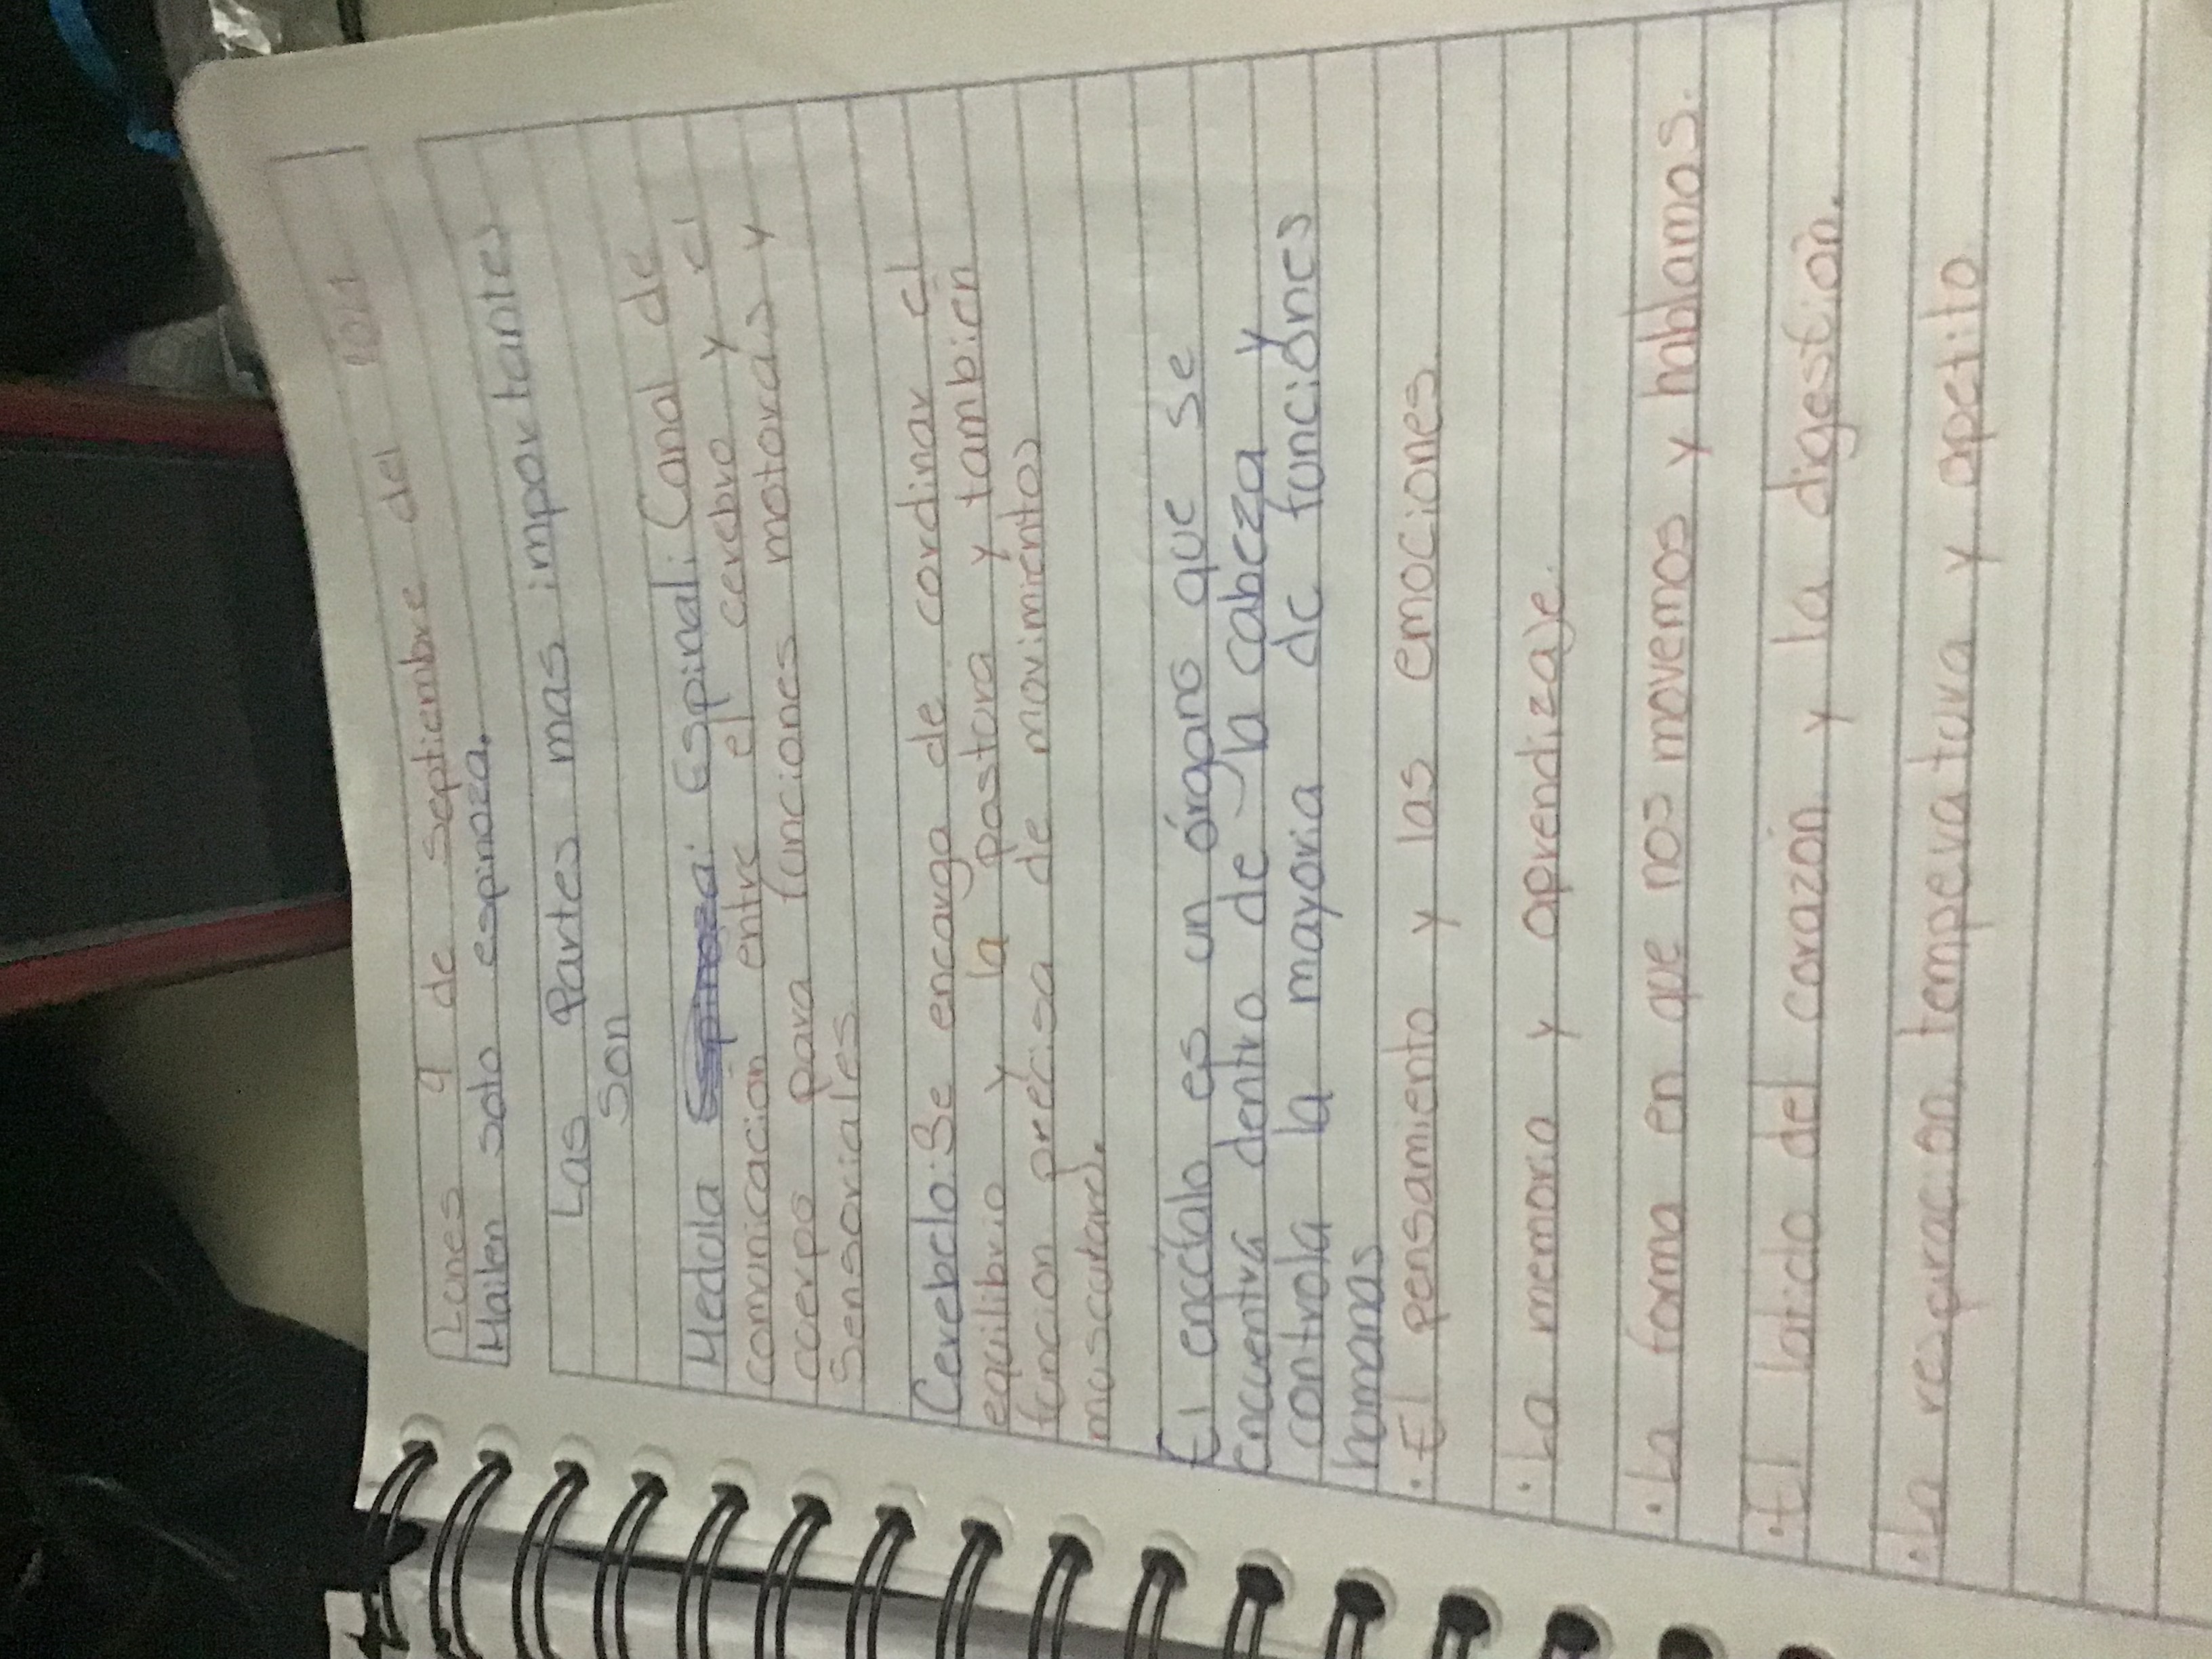 Lunes 9 de Septiembre del
Mailen soto espinoza.
Las Partes mas importantes
son
Medula Espinal: Canal de
comunicación entre el cerebro y el
cuerpo para funciones motoras y
Sensoriales
Cerebelo: Se encarga de cordinar el
equilibrio y la postura y tambien
funcion precisa de movimientos
musculares.
El encéfalo es un órgano que se
encuentra dentro de la cabeza y
controla la mayoria de funciónes
humanas
• El pensamiento y las emociones
• La memoria y aprendizaje.
• La forma en que nos movemos y hablamos.
• El latido del corazón y la digestión.
• La respiración, temperatura y apetito